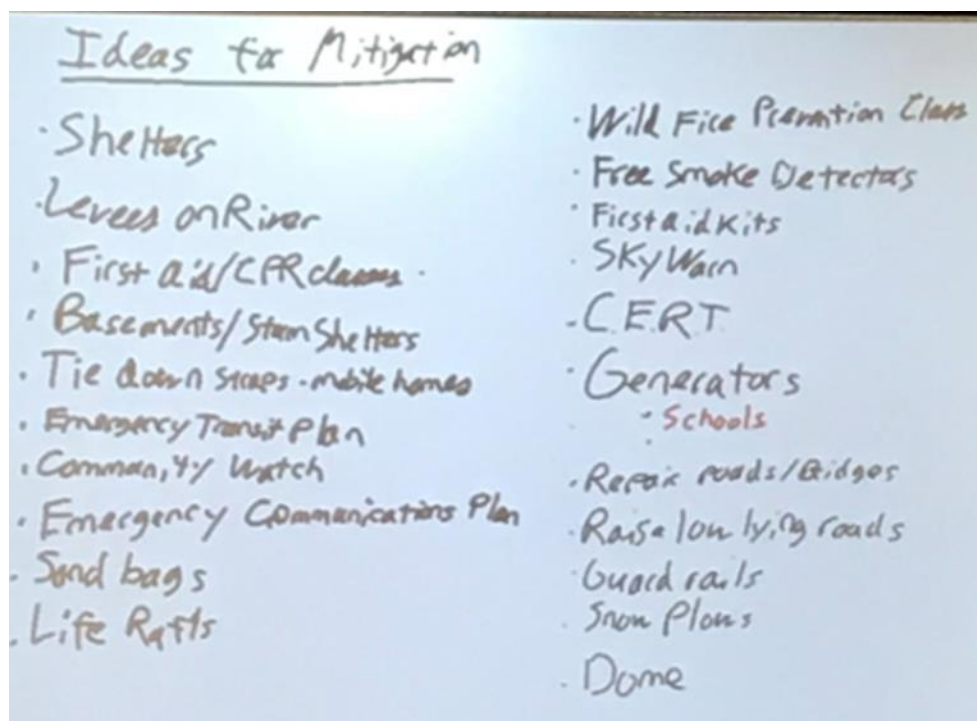 Ideas for Mitigation
· Shelters
· Levees on River
· First aid/CPR classes
· Basements/Storm Shelters
· Tie down straps - mobile homes
· Emergency Transit Plan
· Community Watch
· Emergency Communications Plan
· Sand bags
· Life Rafts
· Wild Fire Prevention Class
· Free Smoke Detectors
· First aid Kits
· SKyWarn
· C.E.R.T
· Generators
· Schools
· Repair roads/Bridges
· Raise low lying roads
· Guard rails
· Snow Plows
· Dome